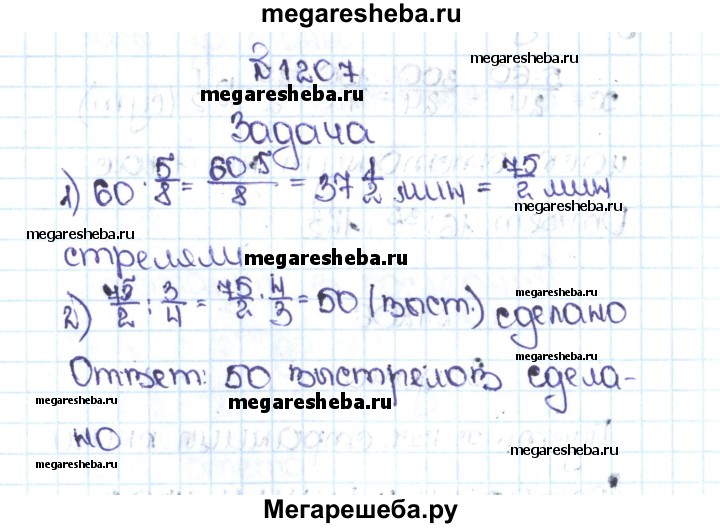 megaresheba.ru
№ 1207
megaresheba.ru
megaresheba.ru
Задача
1) 60 · 5/8 = 60·5/8 = 37 1/2 мин = 75/2 мин
megaresheba.ru
megaresheba.ru
стреляли
megaresheba.ru
2) 75/2 : 3/4 = 75/2 · 4/3 = 50 (выст.) сделано
megaresheba.ru
megaresheba.ru
Ответ: 50 выстрелов сдела-
megaresheba.ru
megaresheba.ru
но
megaresheba.ru
megaresheba.ru
Мегарешеба.ру